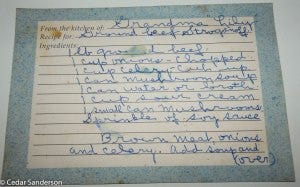 From the kitchen of: Grandma Lily
Recipe for: Ground beef Stroganoff
Ingredients:
lb ground beef
1 cup onions - chopped
1 cup celery -
1 can mushroom soup
1 can water or broth
1 cup sour cream
1 small can mushrooms
Sprinkle of soy sauce
Brown meat onions
and celery. Add soup and
(over)
© Cedar Sanderson